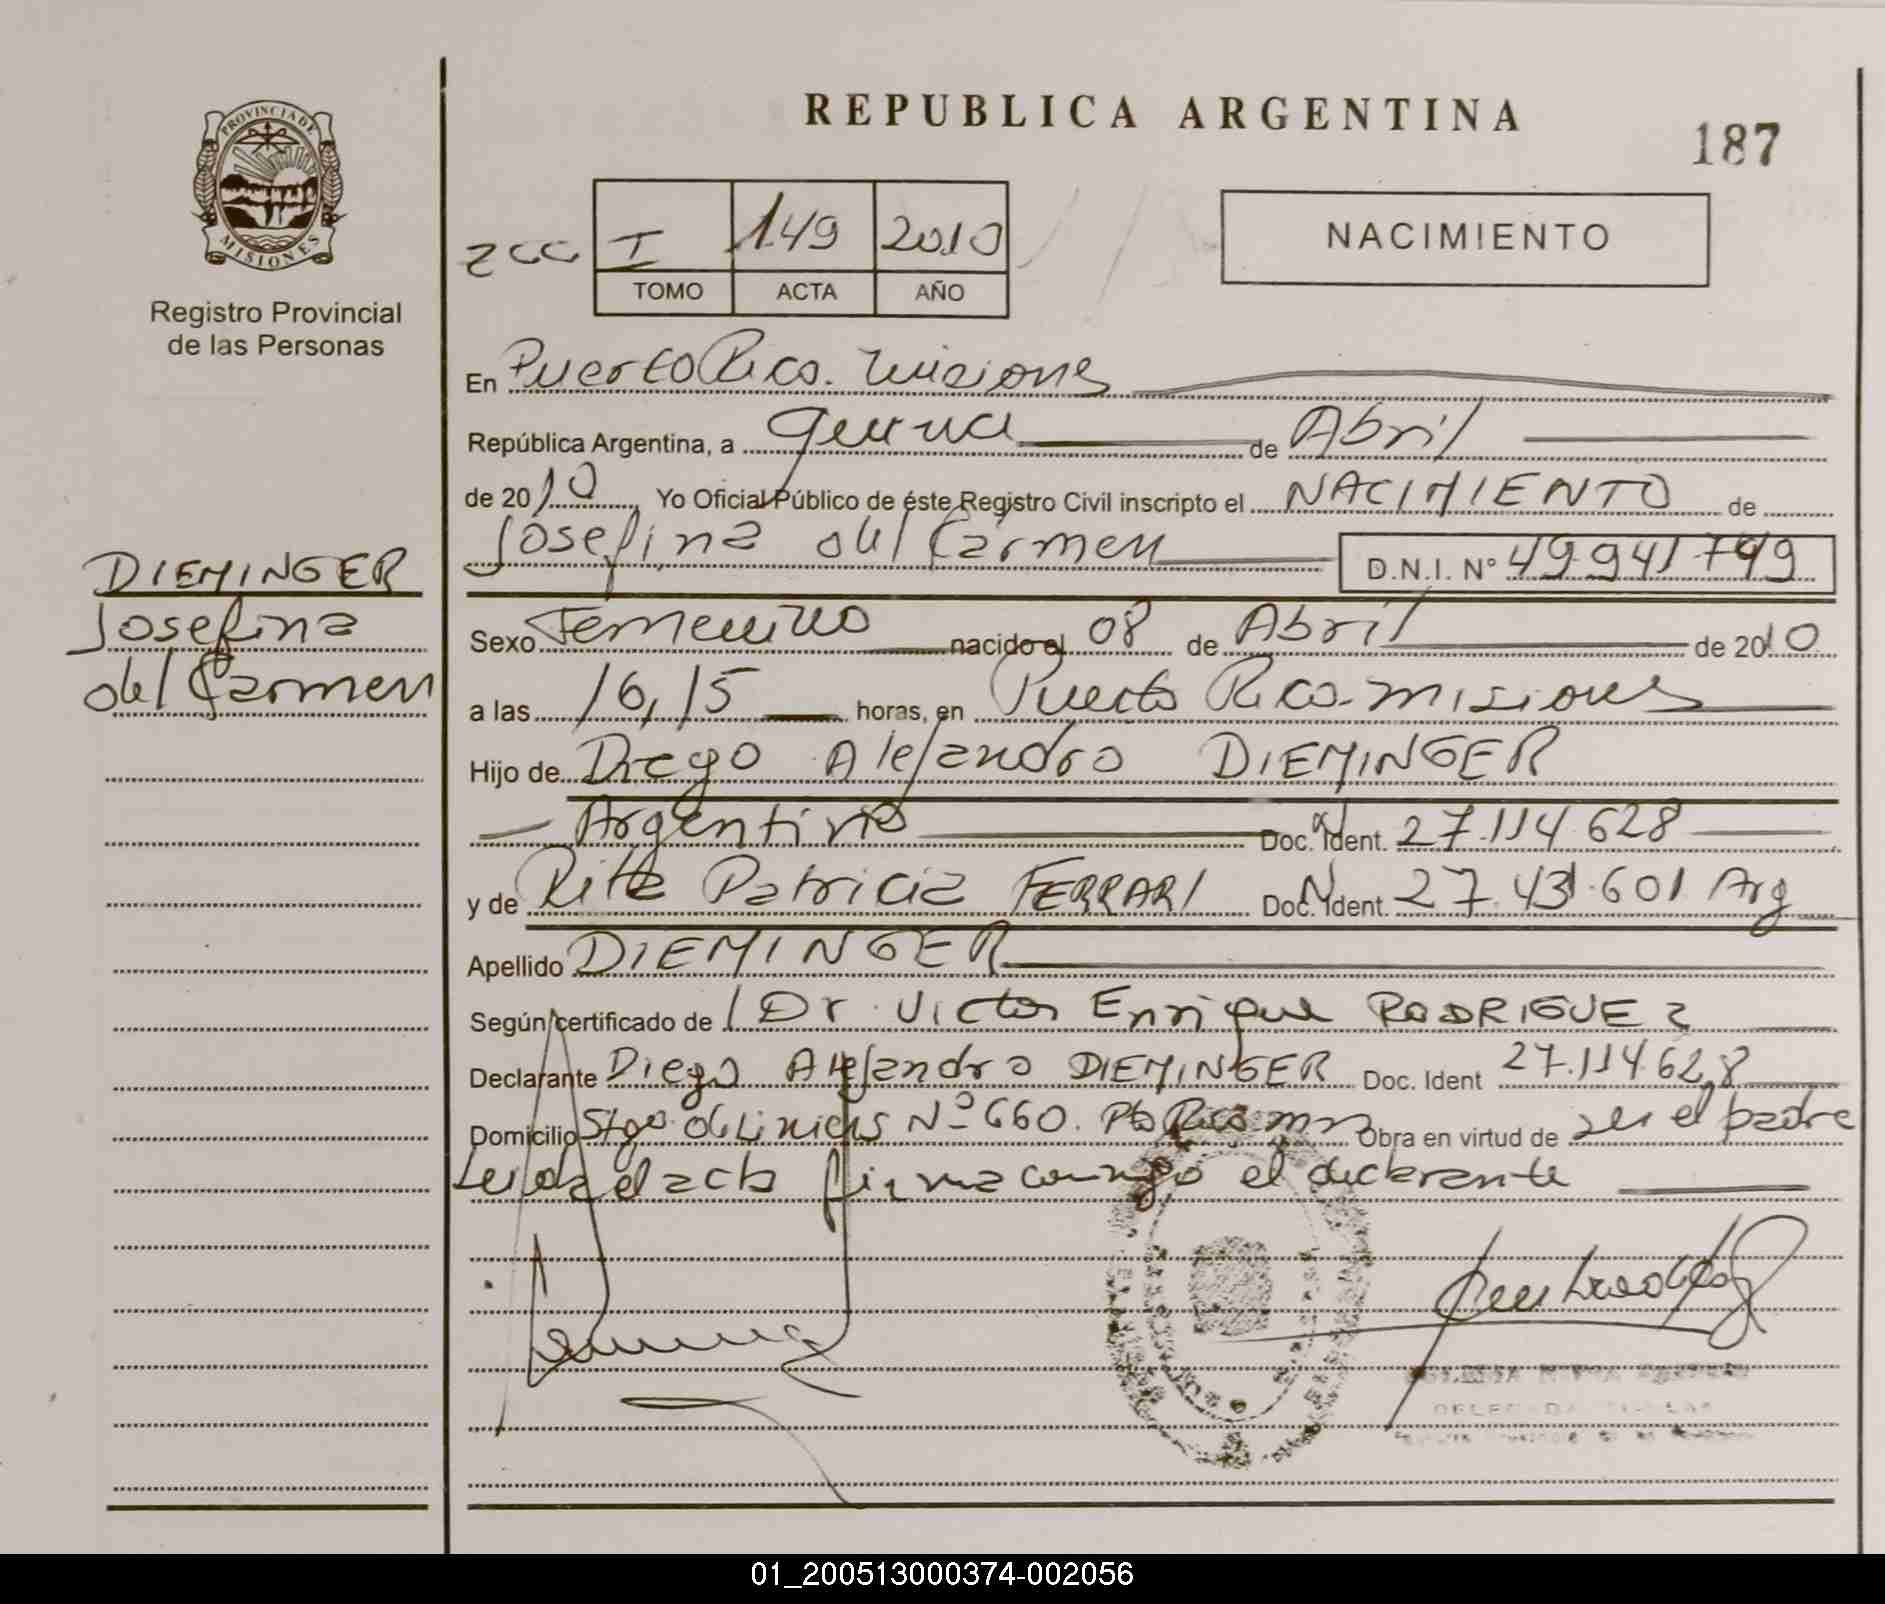 REPUBLICA ARGENTINA
187
PROVINCIA DE
MISIONES
Registro Provincial
de las Personas
I 149 2010
TOMO ACTA AÑO
NACIMIENTO
En Puerto Rico. Misiones
República Argentina, a quince de Abril
de 2010 Yo Oficial Público de éste Registro Civil inscripto el NACIMIENTO de
Josefina del Carmen D.N.I. N° 49.941.749
DIEMINGER
Josefina
del Carmen
Sexo Femenino nacido el 08 de Abril de 2010
a las 16,15 horas, en Puerto Rico-misiones
Hijo de Diego Alejandro DIEMINGER
Argentino Doc. Ident. 27.114.628
y de Rita Patricia FERRARI Doc. Ident. 27.431.601 Arg
Apellido DIEMINGER
Según certificado de Dr. Victor Enrique RODRIGUEZ
Declarante Diego Alejandro DIEMINGER Doc. Ident 27.114.628
Domicilio Stgo. de Liniers Nº 660. Pto Rico mns Obra en virtud de ser el padre
Leida el acta firma conmigo el declarante
01_200513000374-002056